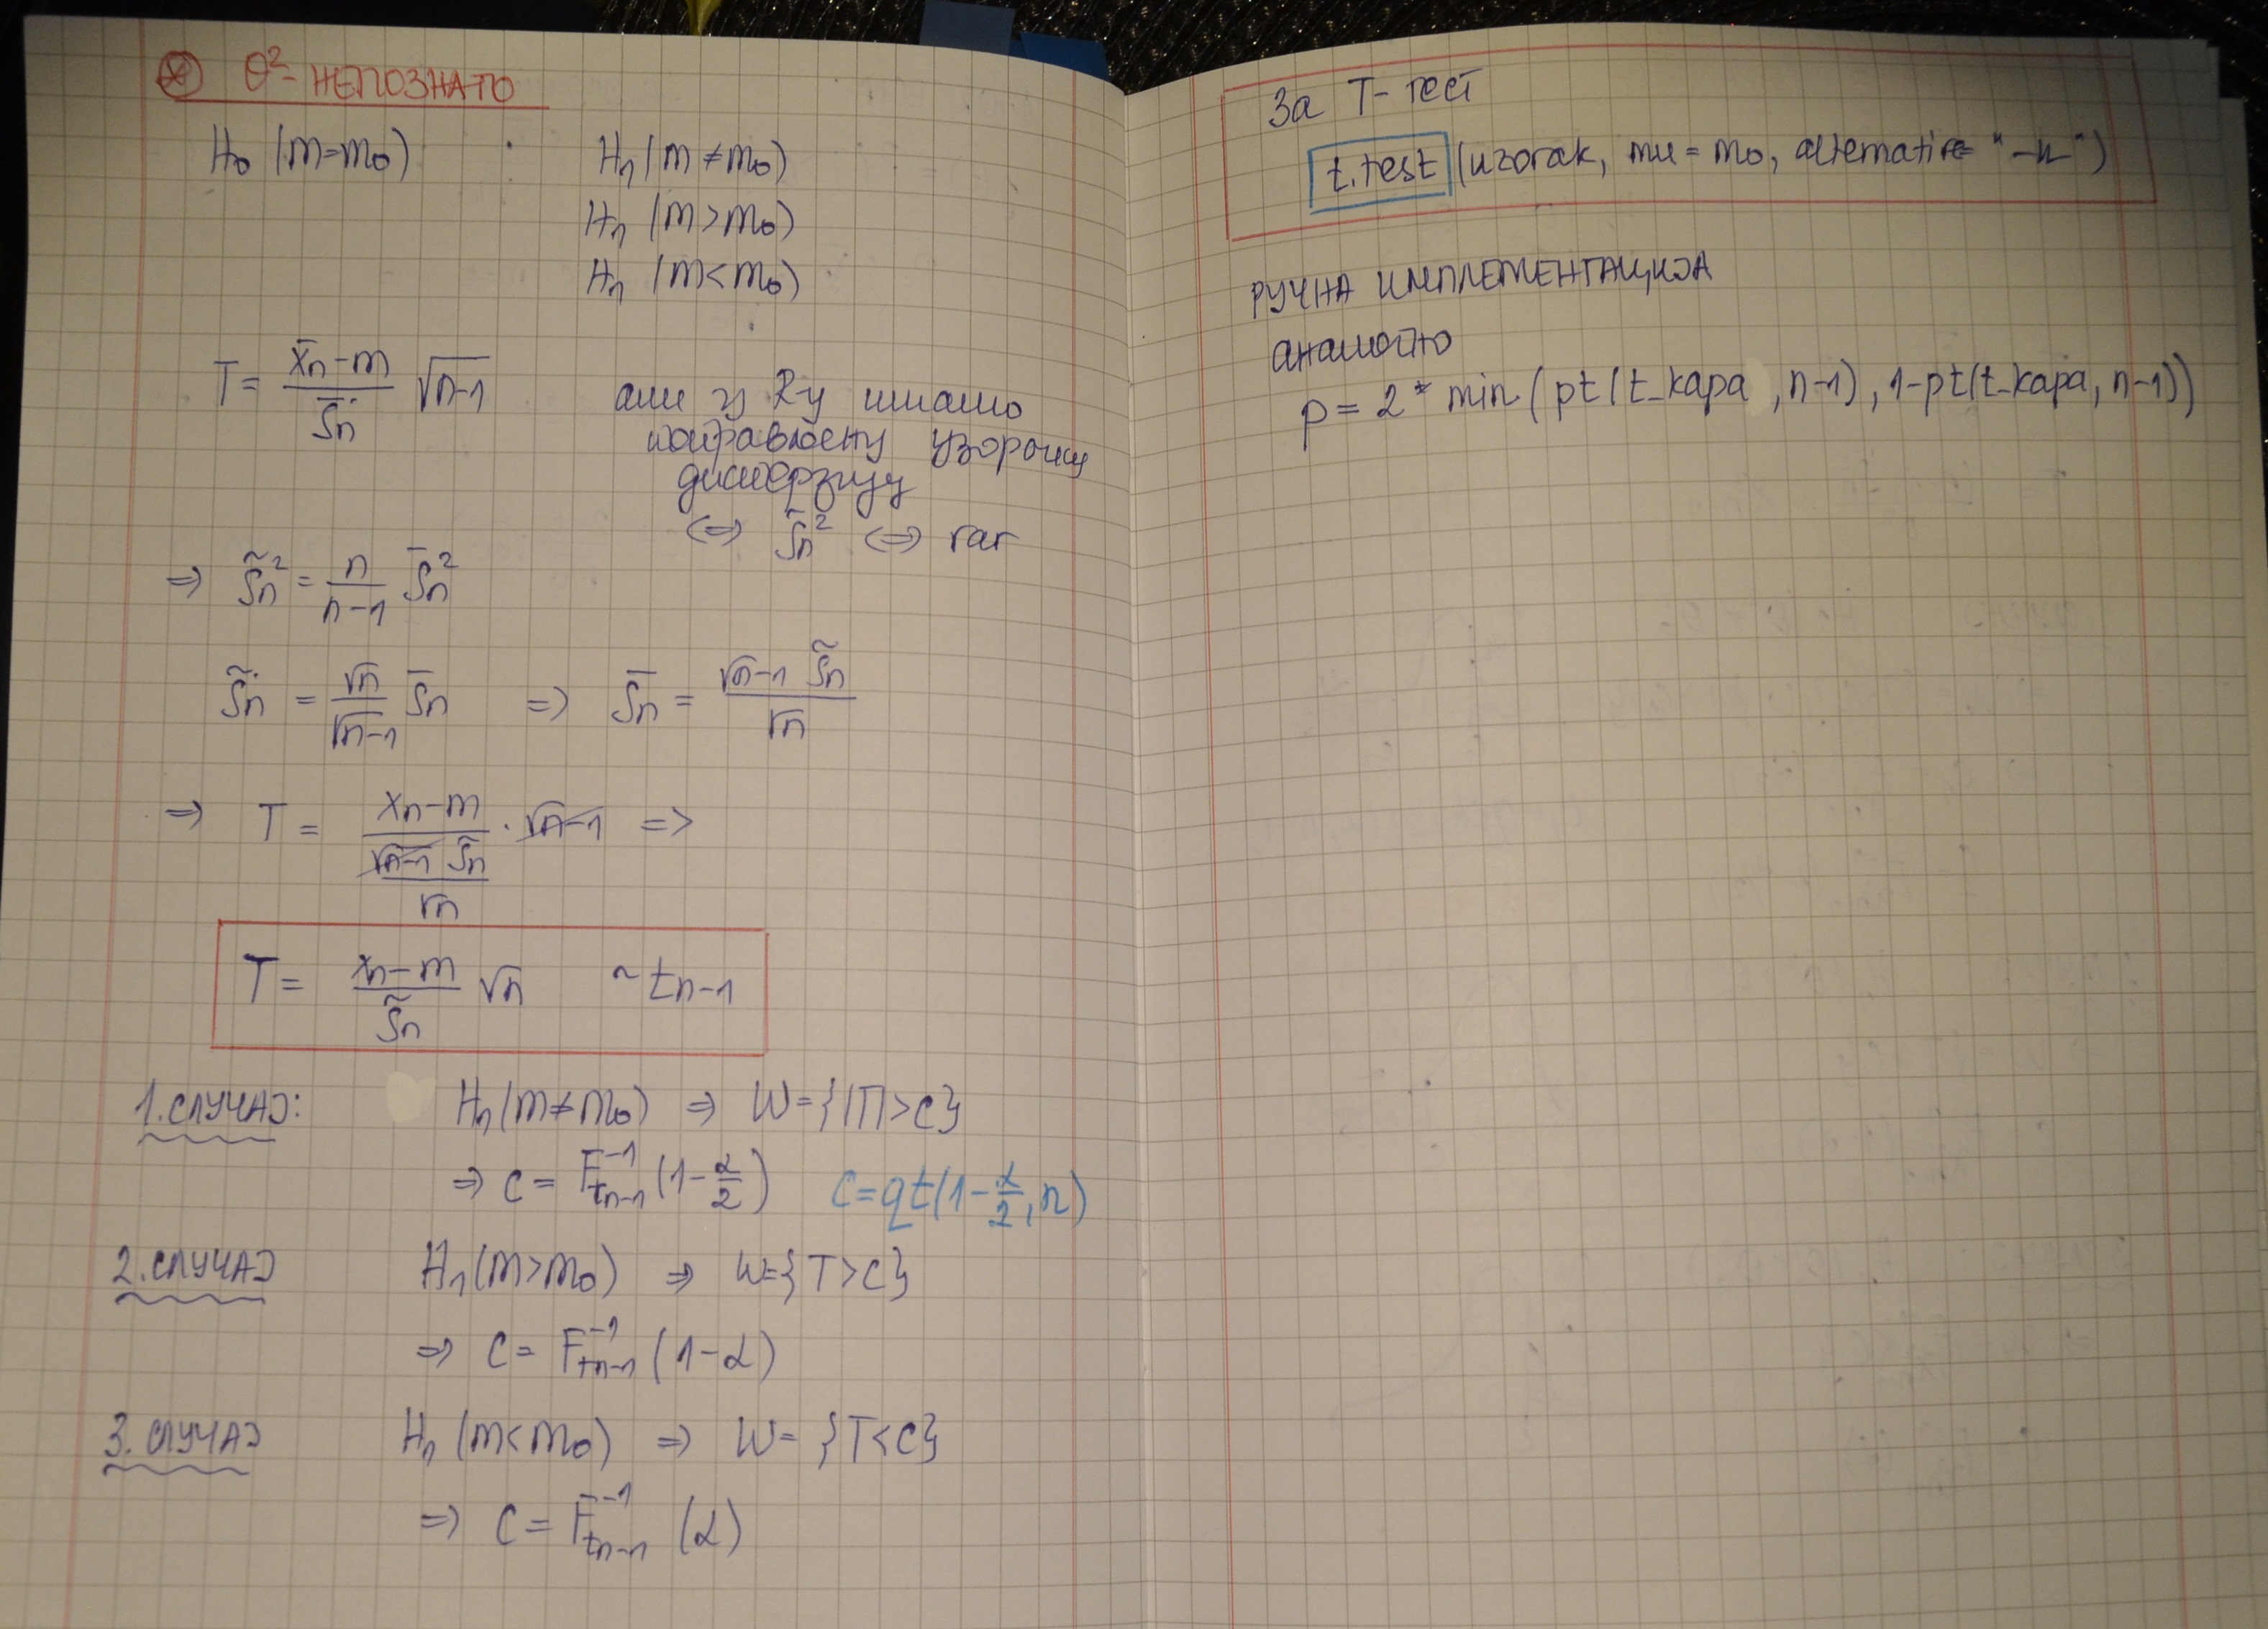 ⊛ σ²- НЕПОЗНАТО
H₀ (m=m₀) H₁(m≠m₀)
H₁ (m>m₀)
H₁ (m<m₀)
T = \frac{x̄n-m}{S̄n} √(n-1) али у R-у имамо
поправљену узорачку
дисперзију
⇔ S̃n² ⇔ var
⇒ S̃n² = \frac{n}{n-1} S̄n²
S̃n = \frac{√n}{√(n-1)} S̄n ⇒ S̄n = \frac{√(n-1) S̃n}{√n}
⇒ T = \frac{xn-m}{\frac{√(n-1) S̃n}{√n}} · √(n-1) =>
T = \frac{x̄n-m}{S̃n} √n ~tn-1
1. СЛУЧАЈ: H₁(m≠m₀) ⇒ W={|T|>C}
⇒ C = F⁻¹tn-1 (1-\frac{α}{2}) C=qt(1-\frac{α}{2}, n)
2. СЛУЧАЈ H₁(m>m₀) ⇒ W={T>C}
⇒ C = F⁻¹tn-1 (1-α)
3. СЛУЧАЈ H₁ (m<m₀) ⇒ W= {T<C}
⇒ C = F⁻¹tn-1 (α)
За Т-тест
t.test (uzorak, mu = m₀, alternative= "-||-")
РУЧНА ИМПЛЕМЕНТАЦИЈА
аналогно
p = 2* min (pt(t_kapa, n-1), 1-pt(t_kapa, n-1))